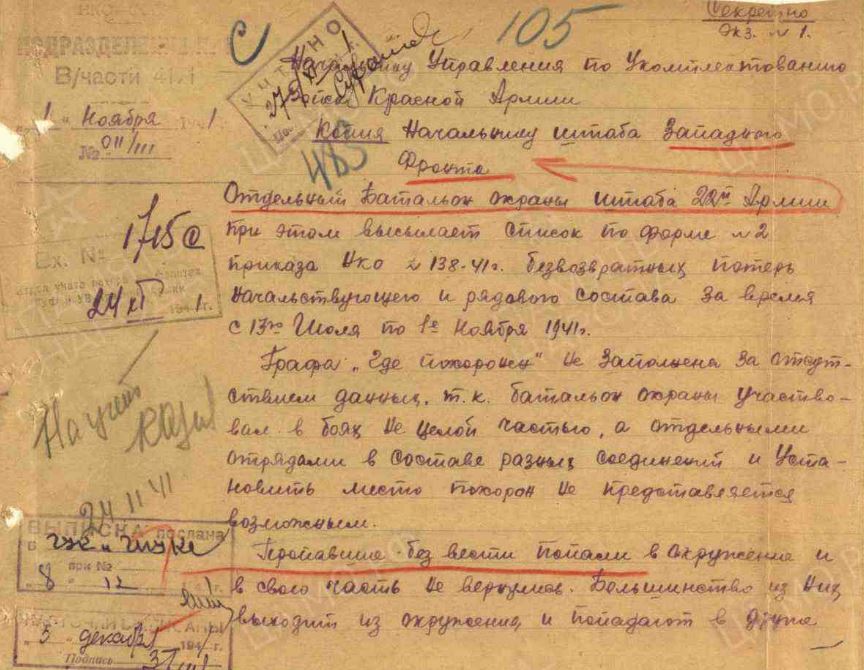 НКО СССР
ПОДРАЗДЕЛЕНИЕ
В/части 41
"1" Ноября 1941
№ 011/III
С
УЧТЕНО
105
Секретно
Экз. №1.
Начальнику Управления по Укомплектованию
войск Красной Армии
Копия Начальнику штаба Западного
Фронта
483
Отдельный Батальон охраны штаба 22й Армии
при этом высылает список по форме №2
приказа НКО №138-41г. безвозвратных потерь
начальствующего и рядового состава за время
с 13го Июля по 1е Ноября 1941г.
Графа "Где похоронен" не заполнена за отсут-
ствием данных, т.к. батальон охраны участво-
вал в боях не целой частью, а отдельными
отрядами в составе разных соединений и уста-
новить место похорон не представляется
возможным.
Пропавшие без вести попали в окружение и
в свою часть не вернулись. Большинство из них
выходит из окружения и попадают в другие
Вх. № 1715с
24 XI 1941г.
На учет
24 11 41
ВЫПИСКА послана
в
при №
"8" 12
"5" декабря 194 г.
Подпись